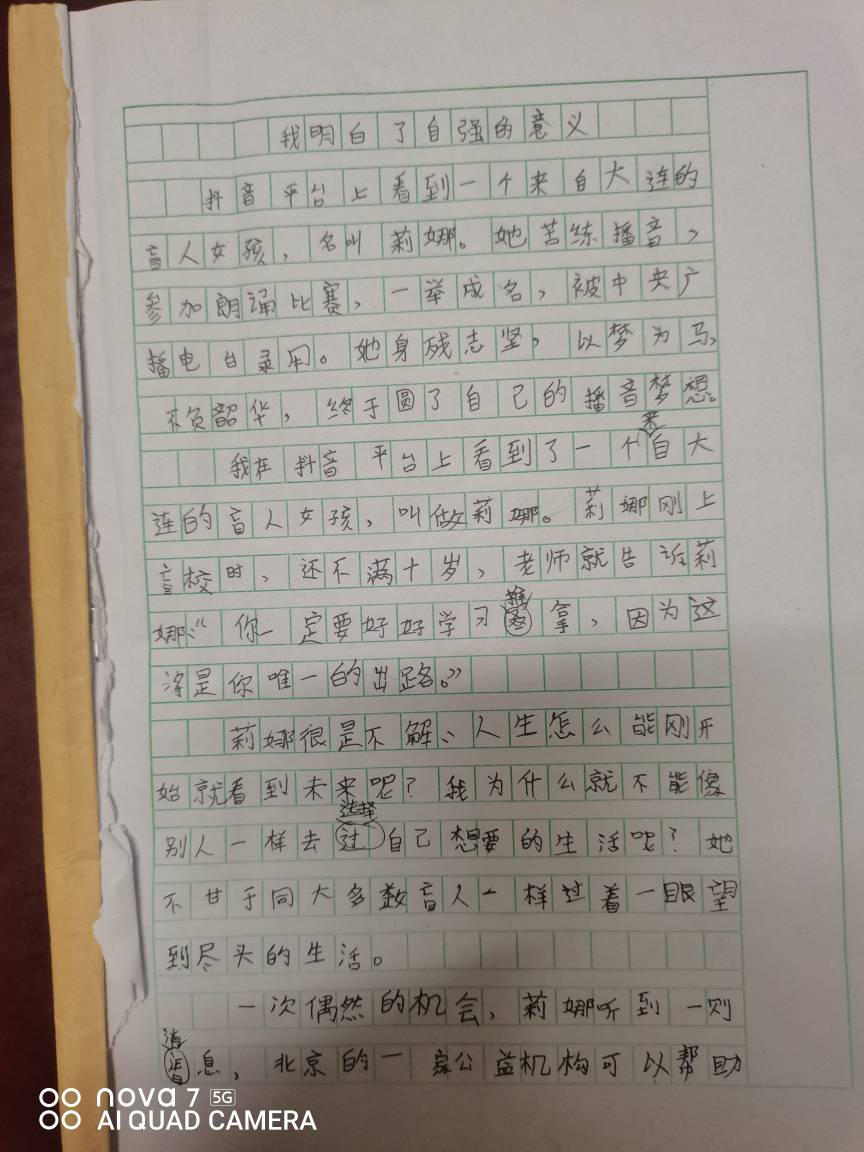 我明白了自强的意义
抖音平台上看到一个来自大连的
盲人女孩，名叫莉娜。她苦练播音，
参加朗诵比赛，一举成名，被中央广
播电台录用。她身残志坚，以梦为马，
不负韶华，终于圆了自己的播音梦想。
我在抖音平台上看到了一个来自大
连的盲人女孩，叫做莉娜。莉娜刚上
盲校时，还不满十岁，老师就告诉莉
娜：“你一定要好好学习推拿，因为这
将是你唯一的出路。”
莉娜很是不解、人生怎么能刚开
始就看到未来呢？我为什么就不能像
别人一样去选择自己想要的生活呢？她
不甘于同大多数盲人一样过着一眼望
到尽头的生活。
一次偶然的机会，莉娜听到一则
消息，北京的一家公益机构可以帮助
nova 7 5G
AI QUAD CAMERA